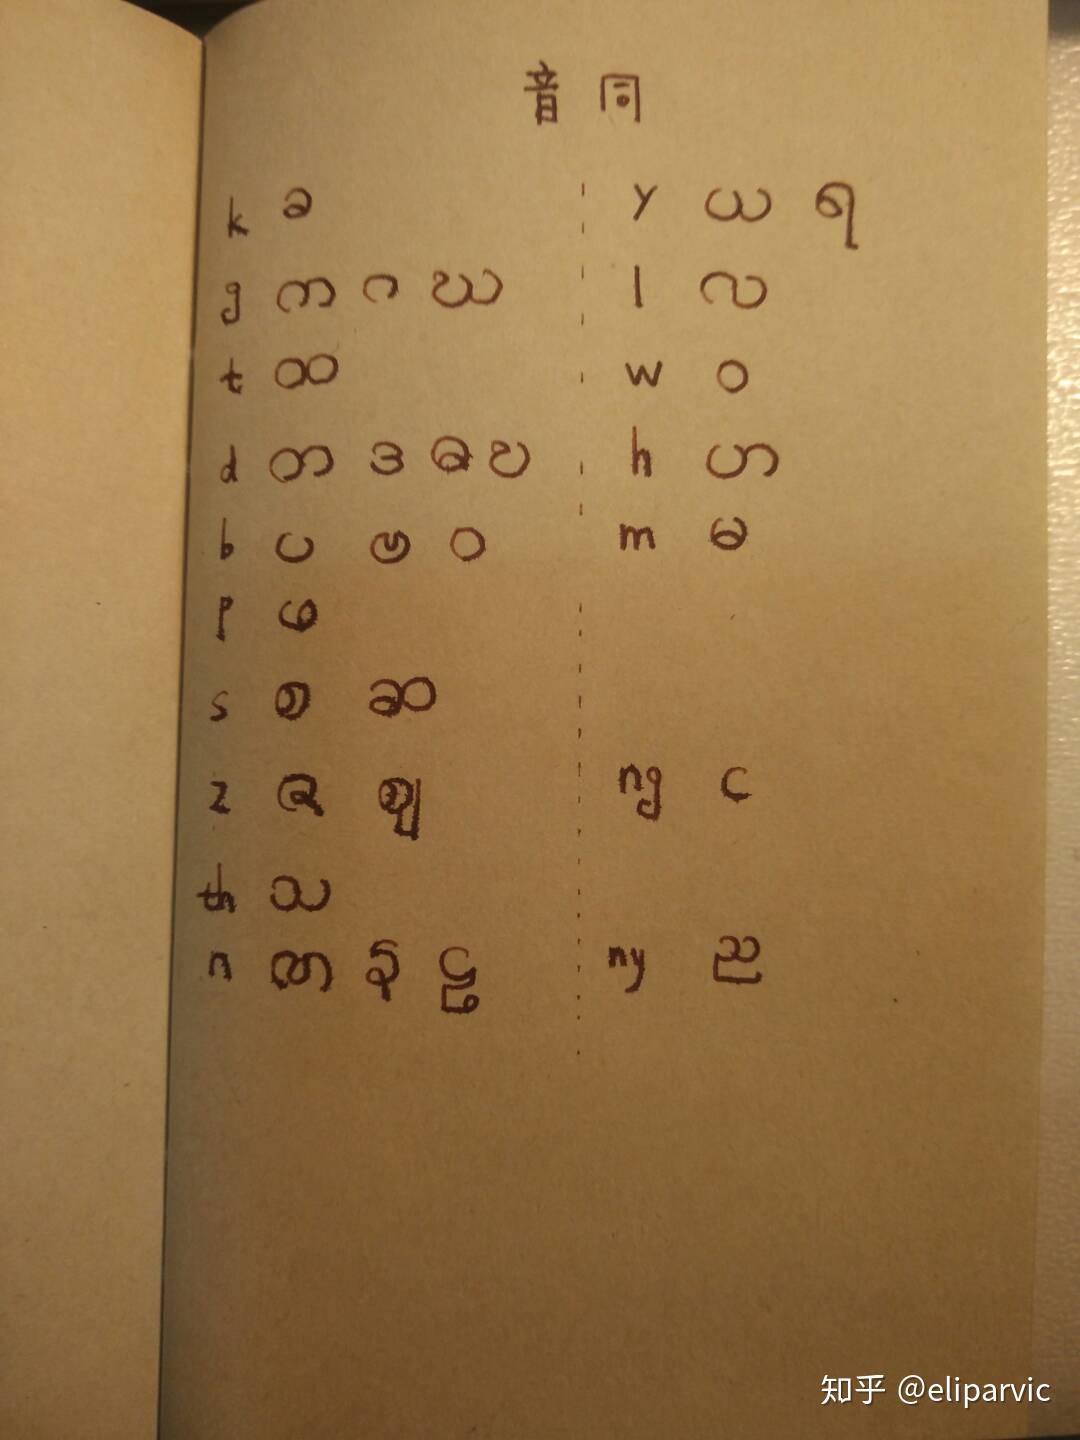 音 同
k ခ y ယ ရ
g က ဂ ဃ l လ
t ထ w ဝ
d တ ဒ h ဟ
b ပ ဗ m မ
p ဖ
s စ ဆ
z ဇ ဈ ng င
th သ
n ဏ န ny ည
知乎 @eliparvic